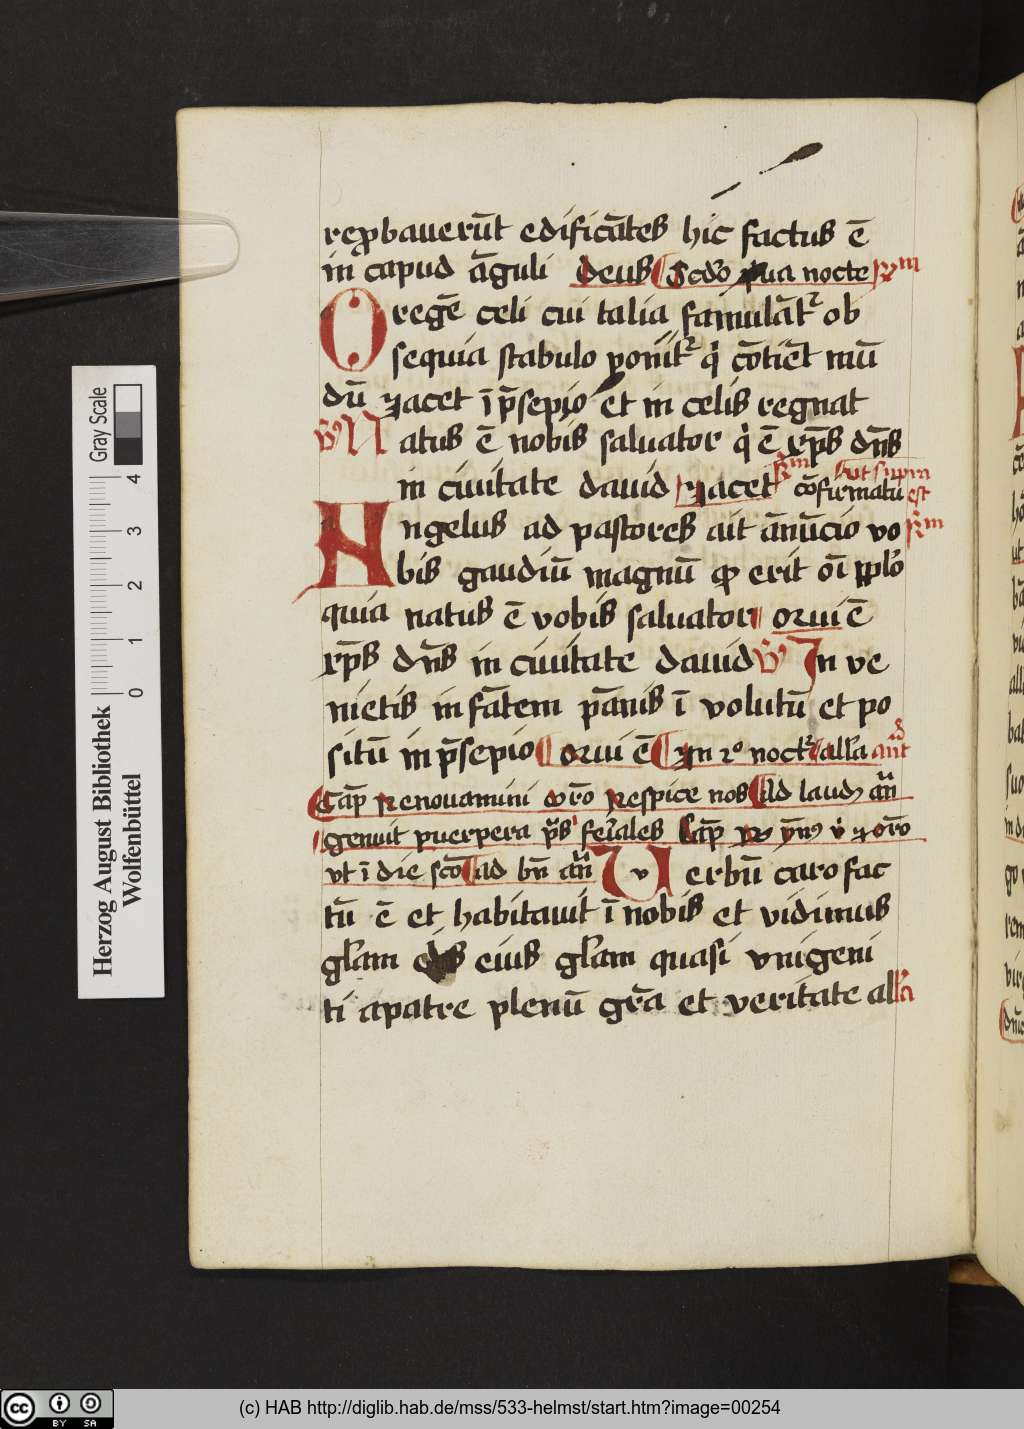 reꝓbauerūt edificātes hic factus ē
in capud āguli deus Scdo qua nocte Rm
O regē celi cui talia famulāt᷑ ob
sequia stabulo ponit᷑ q̇ cōtiēt mū
dū Jacet ī p̄sepio et in celis regnat
W Natus ē nobis saluator q̇ ē xp̄s dn̄s
in ciuitate dauid Jacet Rm cōfirmatū est
Aut supra
Angelus ad pastores ait ānūcio vo Rm
bis gaudiū magnū qͥ erit oī pplo
quia natus ē vobis saluator orui ē
xp̄s dn̄s in ciuitate dauid W In ve
nietis infātem pānis ī volutū et po
sitū in p̄sepio orui ē Yn 2o noct᷑ alla ant ad
Cap̄ Renouamini oro Respice nos Ad laudꝫ an
genuit puerpera ps feriales Cap̄
vt ī die scō ad bn̄ an Verbū caro fac
tū ē et habitauit ī nobis et vidimus
glam eius glam quasi vnigeni
ti apatre plenū gr̄a et veritate alla
Herzog August Bibliothek
Wolfenbüttel
0 1 2 3 4
Gray Scale
cc BY SA
(c) HAB http://diglib.hab.de/mss/533-helmst/start.htm?image=00254